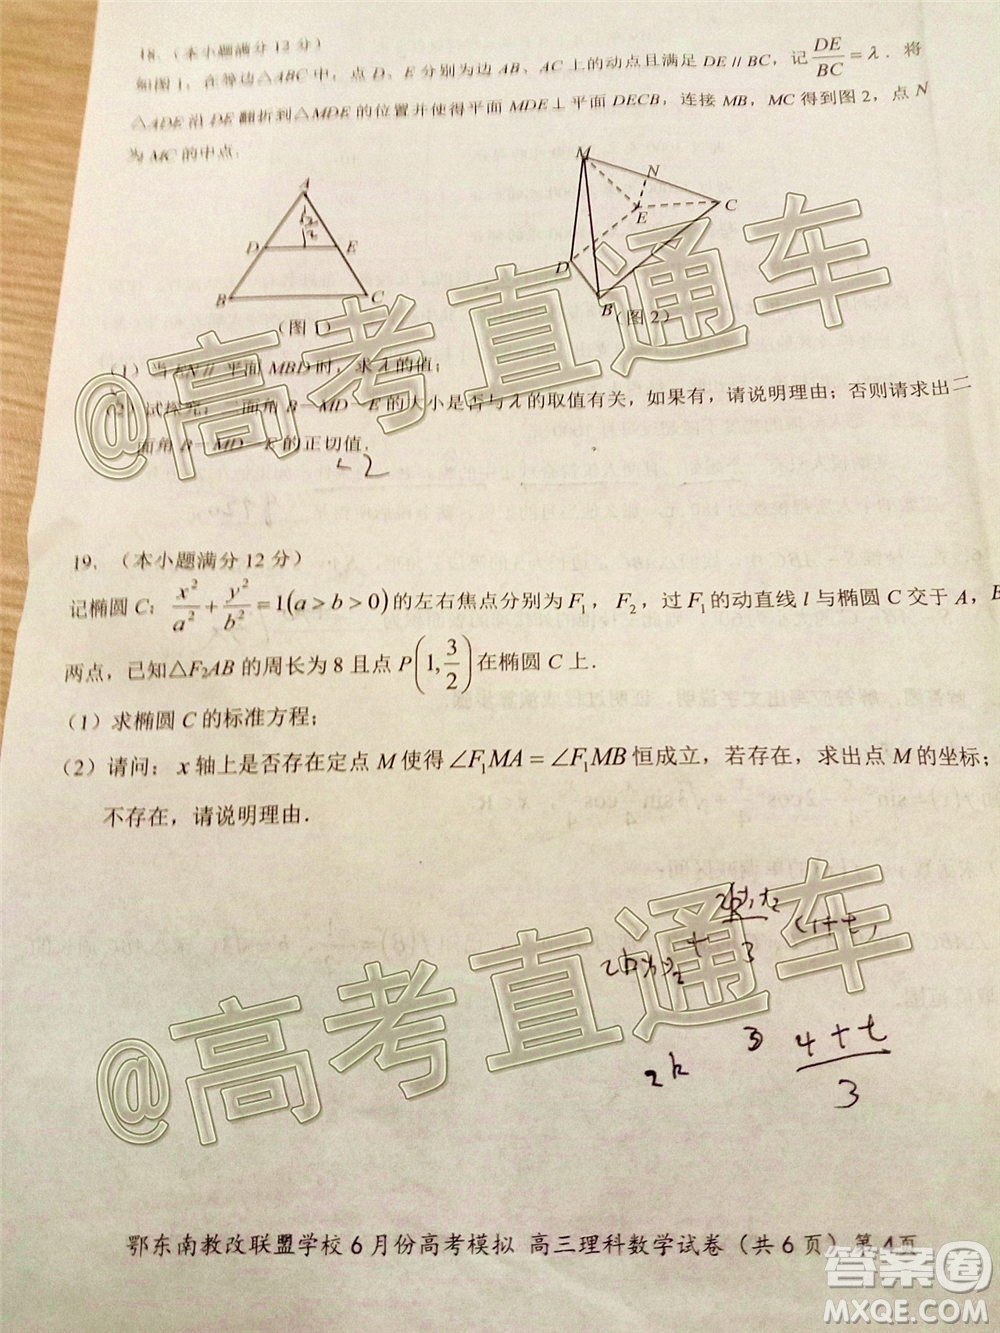 18.（本小题满分12分）
如图1，在等边△ABC中，点D、E分别为边AB、AC上的动点且满足DE // BC，记DE/BC=λ．将
△ADE沿DE翻折到△MDE的位置并使得平面MDE⊥平面DECB，连接MB，MC得到图2，点N
为MC的中点．
A
D
E
B
C
（图1）
M
N
E
C
D
B
（图2）
（1）当EN // 平面MBD时，求λ的值；
（2）试探究：二面角B－MD－E的大小是否与λ的取值有关，如果有，请说明理由；否则请求出二
面角B－MD－E的正切值．
-2
19.（本小题满分12分）
记椭圆C：x²/a²+y²/b²=1(a>b>0)的左右焦点分别为F₁，F₂，过F₁的动直线l与椭圆C交于A，B
两点，已知△F₂AB的周长为8且点P(1,3/2)在椭圆C上．
（1）求椭圆C的标准方程；
（2）请问：x轴上是否存在定点M使得∠F₁MA=∠F₁MB恒成立，若存在，求出点M的坐标；
不存在，请说明理由．
3
2k
4+t
3
@高考直通车
@高考直通车
鄂东南教改联盟学校6月份高考模拟 高三理科数学试卷（共6页）第4页
答案圈
MXQE.COM